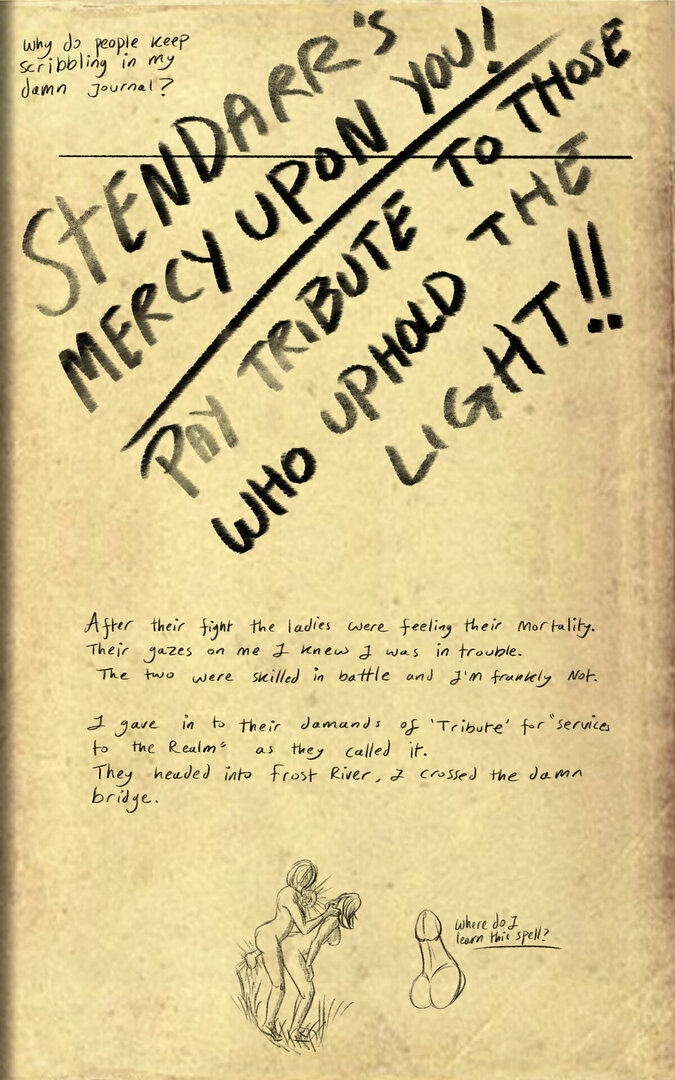 Why do people keep
scribbling in my
damn journal?
STENDARR'S
MERCY UPON YOU!
PAY TRIBUTE TO THOSE
WHO UPHOLD THE
LIGHT!!
After their fight the ladies were feeling their mortality.
Their gazes on me I knew I was in trouble.
The two were skilled in battle and I'm frankly Not.
I gave in to their damands of 'Tribute' for "services
to the Realm" as they called it.
They headed into Frost River, I crossed the damn
bridge.
Where do I
learn this spell?